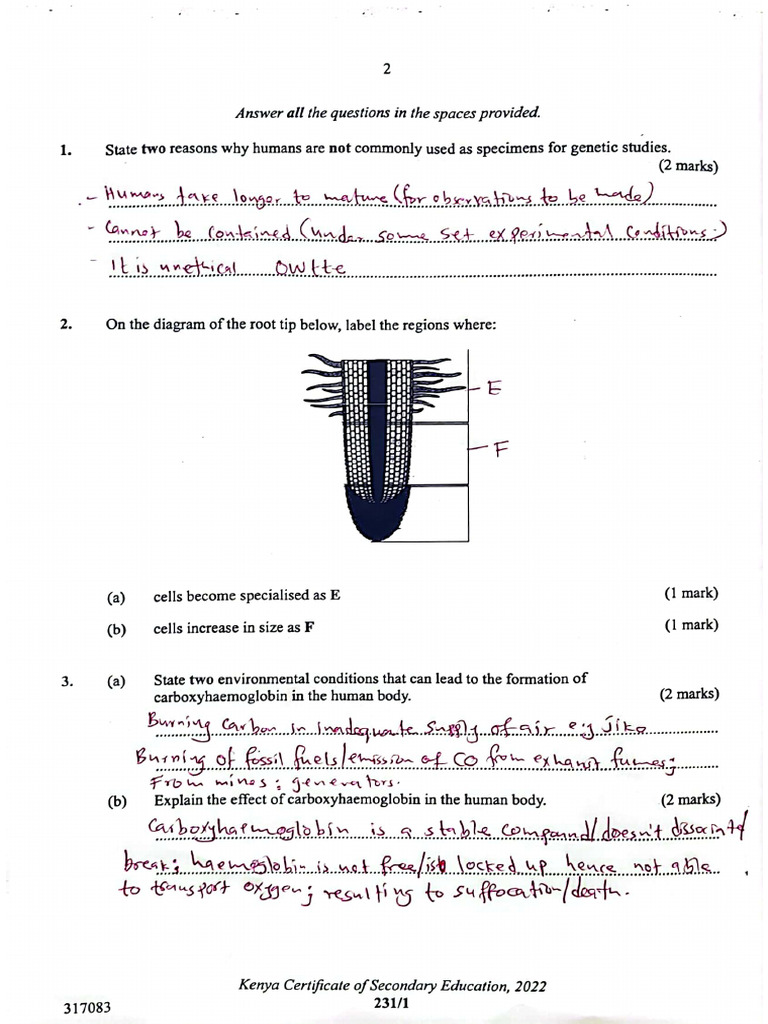 2
Answer all the questions in the spaces provided.
1. State two reasons why humans are not commonly used as specimens for genetic studies.
(2 marks)
- Humans take longer to mature (for observations to be made)
- Cannot be contained (under some set experimental conditions)
- It is unethical OWtte
2. On the diagram of the root tip below, label the regions where:
E
F
(a) cells become specialised as E (1 mark)
(b) cells increase in size as F (1 mark)
3. (a) State two environmental conditions that can lead to the formation of
carboxyhaemoglobin in the human body. (2 marks)
Burning Carbon in inadequate supply of air e.g Jiko
Burning of fossil fuels/emission of CO from exhaust fumes;
From mines; generators.
(b) Explain the effect of carboxyhaemoglobin in the human body. (2 marks)
Carboxyhaemoglobin is a stable compound/doesn't
break; haemoglobin is not free/is locked up hence not able
to transport oxygen; resulting to suffocation/death.
Kenya Certificate of Secondary Education, 2022
317083 231/1